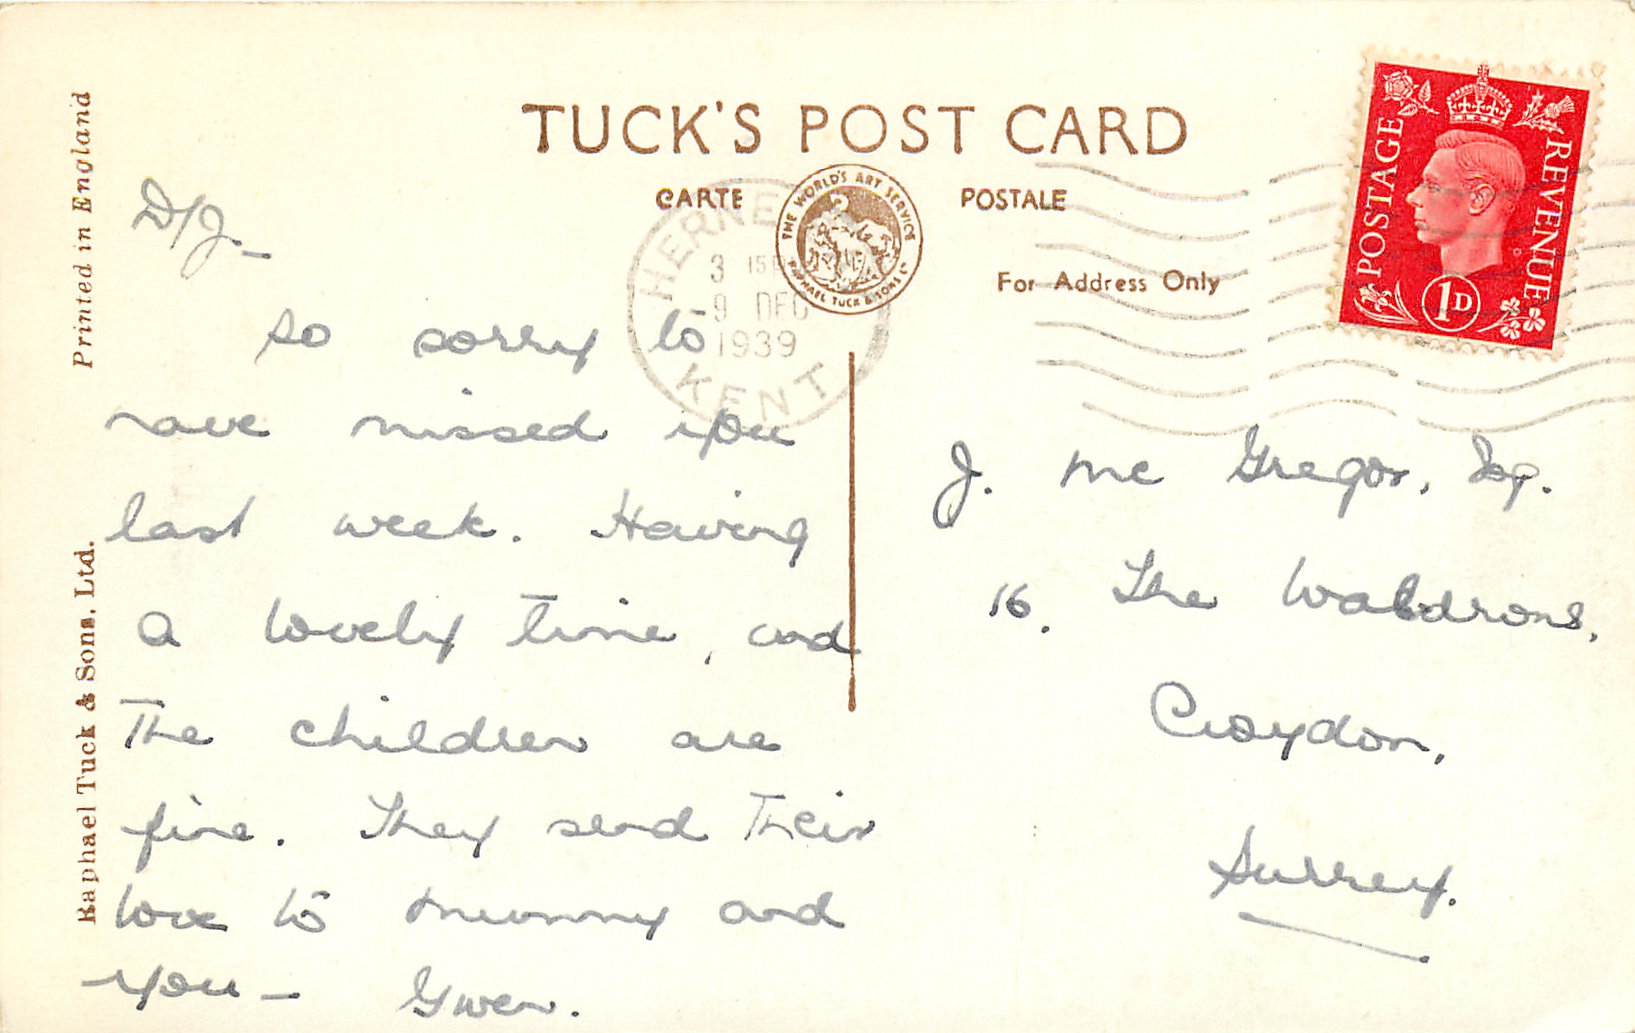 TUCK'S POST CARD
CARTE POSTALE
THE WORLD'S ART SERVICE
RAPHAEL TUCK & SONS LD
For Address Only
Printed in England
Raphael Tuck & Sons, Ltd.
POSTAGE REVENUE
1D
HERNE
3 15 P
9 DEC
1939
KENT
D/J. –
So sorry to
have missed you
last week. Having
a lovely time, and
the children are
fine. They send their
love to mummy and
you – Gwen.
J. Mc Gregor, Esq.
16. The Waldrons,
Croydon,
Surrey.